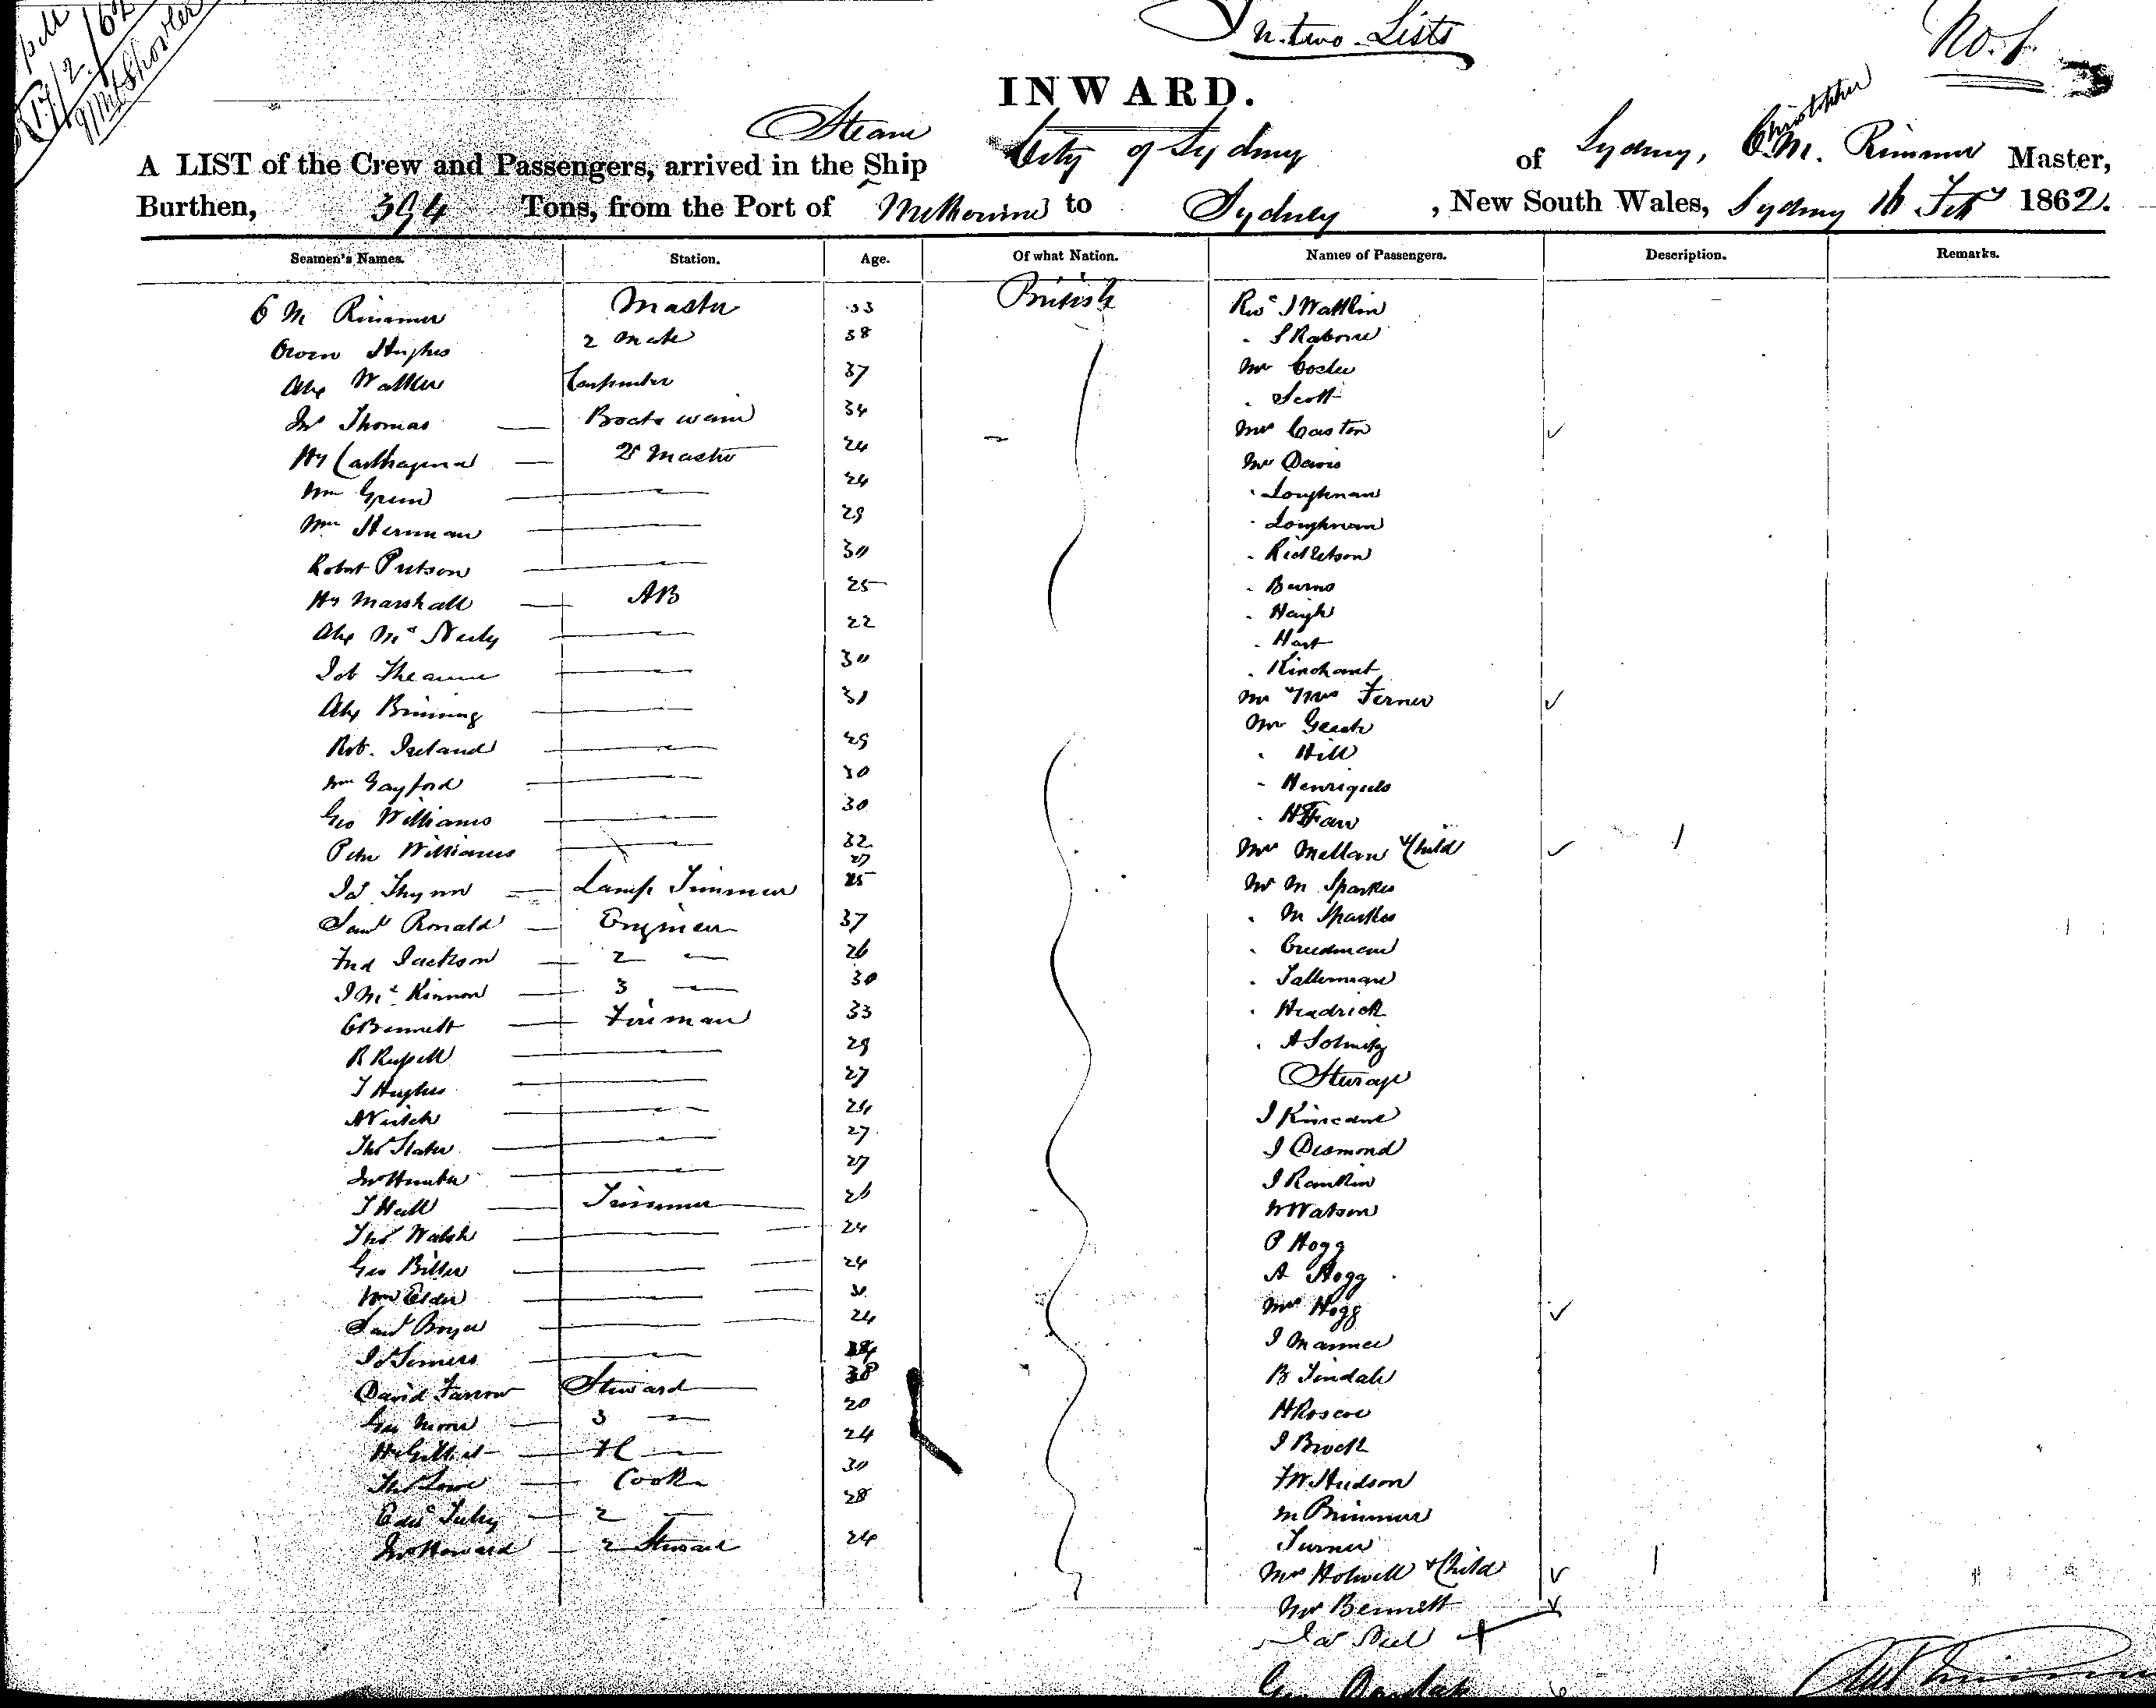 In two Lists
No. 1.
17/2/62
INWARD.
Steam
Christopher
A LIST of the Crew and Passengers, arrived in the Ship City of Sydney of Sydney, C.M. Rimmer Master,
Burthen, 394 Tons, from the Port of Melbourne to Sydney , New South Wales, Sydney 16 Feby 1862.
Seamen's Names. Station. Age. Of what Nation. Names of Passengers. Description. Remarks.
C M Rimmer Master 33 British Revd J Watkin
Owen Hughes 2 Mate 38 " S Rabone
Alex Walker Carpenter 37 Mr
Jno Thomas Boatswain 34 " Scott
Hy 2r Master 24 Mrs Caston
Wm Green 24 Mr Davis
Wm Herrman 29 " Loughnan
Robert 30 " Loughnan
Hy Marshall AB 25 " Ricketson
Alex 22 " Burns
30 " Haigh
Alex Binning 31 " Hart
Rob. Ireland 29 " Kinchant
Wm Gayford 30 Mr & Mrs Ferner
Geo Williams 30 Mr
Peter Williams 32 " Hill
27 " Henriques
Jas Lamp Trimmer 25
Saml Ronald Engineer 37 Mrs Mellan & Child 1
Fred Jackson 2 26 Mr M Sparkes
J McKinnon 3 30 " M Sparkes
C Bennett Fireman 33 " Creedman
R Russell 29 " Tallerman
T Hughes 27 " Headrick
A Veitch 24 "
Thos Slater 27 Steerage
Jno Hunter 27 J Kincane
T Hall Trimmer 26 J Desmond
Thos Walsh 24 J Rankin
Geo 24 W Watson
Wm Elder 31 P Hogg
Saml Boyer 24 A Hogg
Jas Somers Mrs Hogg
David Farrow Steward 38 J
Geo Moore 3 20 B Tindale
H Gilbert 24 H Roscoe
Thos Lowe Cook 30 J Brock
Edwd 2 28 F W Hudson
Jno Howard 2 Steward 24 M Brimmer
Turner
Mrs Holwell & Child 1
Mr Bennett
Jas Neil
Geo